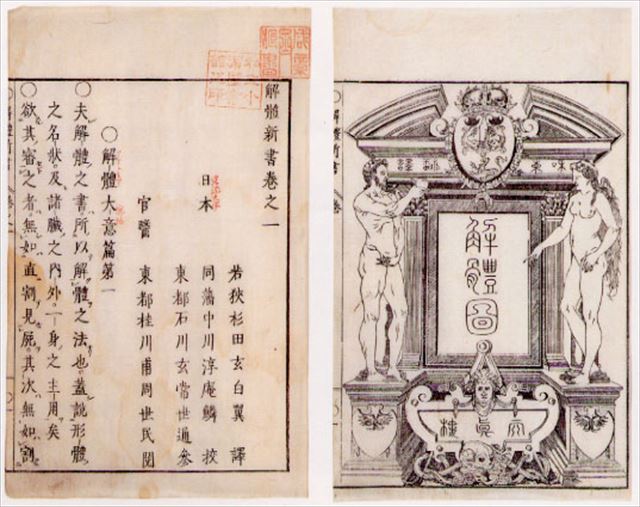 解體新書卷之一
若狹杉田玄白翼 譯
日本 同藩中川淳庵鱗 挍
東都石川玄常世通 參
官醫 東都桂川甫周世民 閱
○解體大意篇第一
○夫解體之書所以解體之法也蓋說形體
之名狀及諸臟之内外一身之主用矣
○欲其審之者無如直割見屍其次無如割
解體圖
天真樓